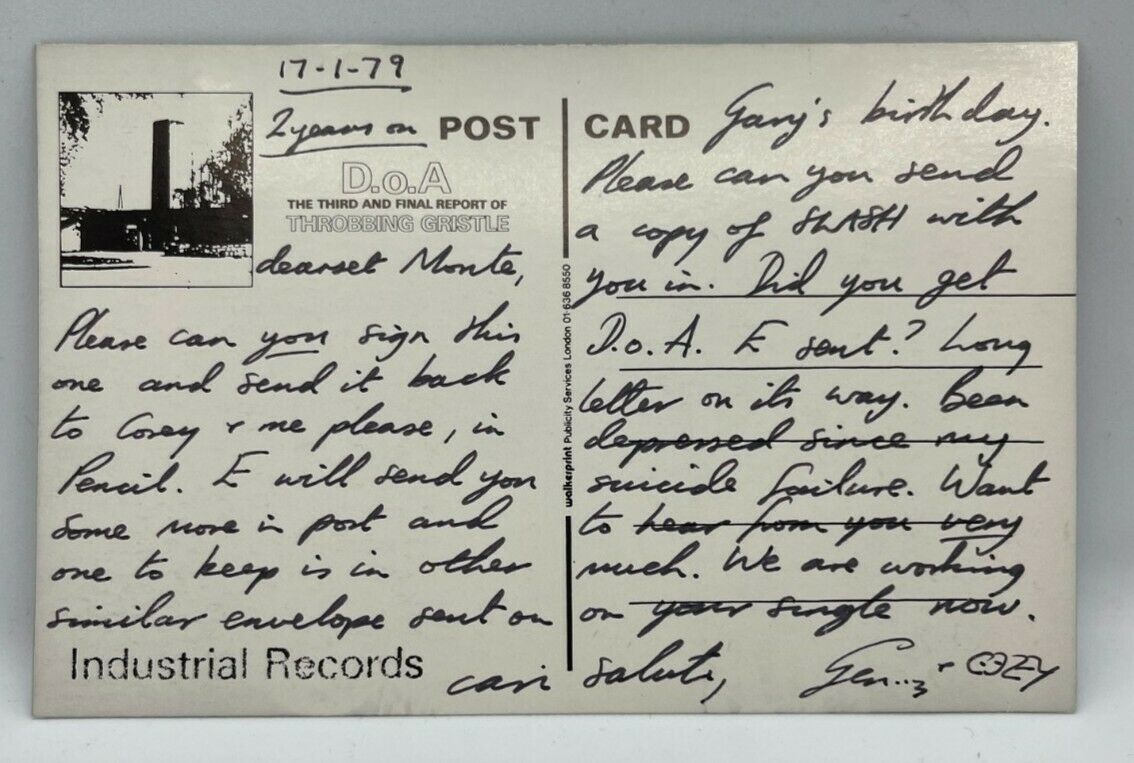 17-1-79
2 years on
POST CARD
D.o.A
THE THIRD AND FINAL REPORT OF
THROBBING GRISTLE
dearset Monte,
Please can you sign this
one and send it back
to Cosey + me please, in
Pencil. E will send you
some more in post and
one to keep is in other
similar envelope sent on
Gary's birthday.
Please can you send
a copy of SLASH with
you in. Did you get
D.o.A. E sent? Long
letter on its way. Been
depressed since my
suicide failure. Want
to hear from you very
much. We are working
on your single now.
cari saluti, Gen... + COZY
Industrial Records
walkerprint Publicity Services London 01-636 8550